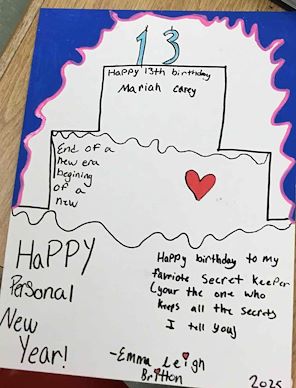 13
Happy 13th birthday
Mariah carey
End of a
new era
begining
of a
new
HaPPY
Personal
New
Year!
Happy birthday to my
favriote secret keeper
(your the one who
keeps all the secrets
I tell you)
-Emma Leigh
Britton
2025